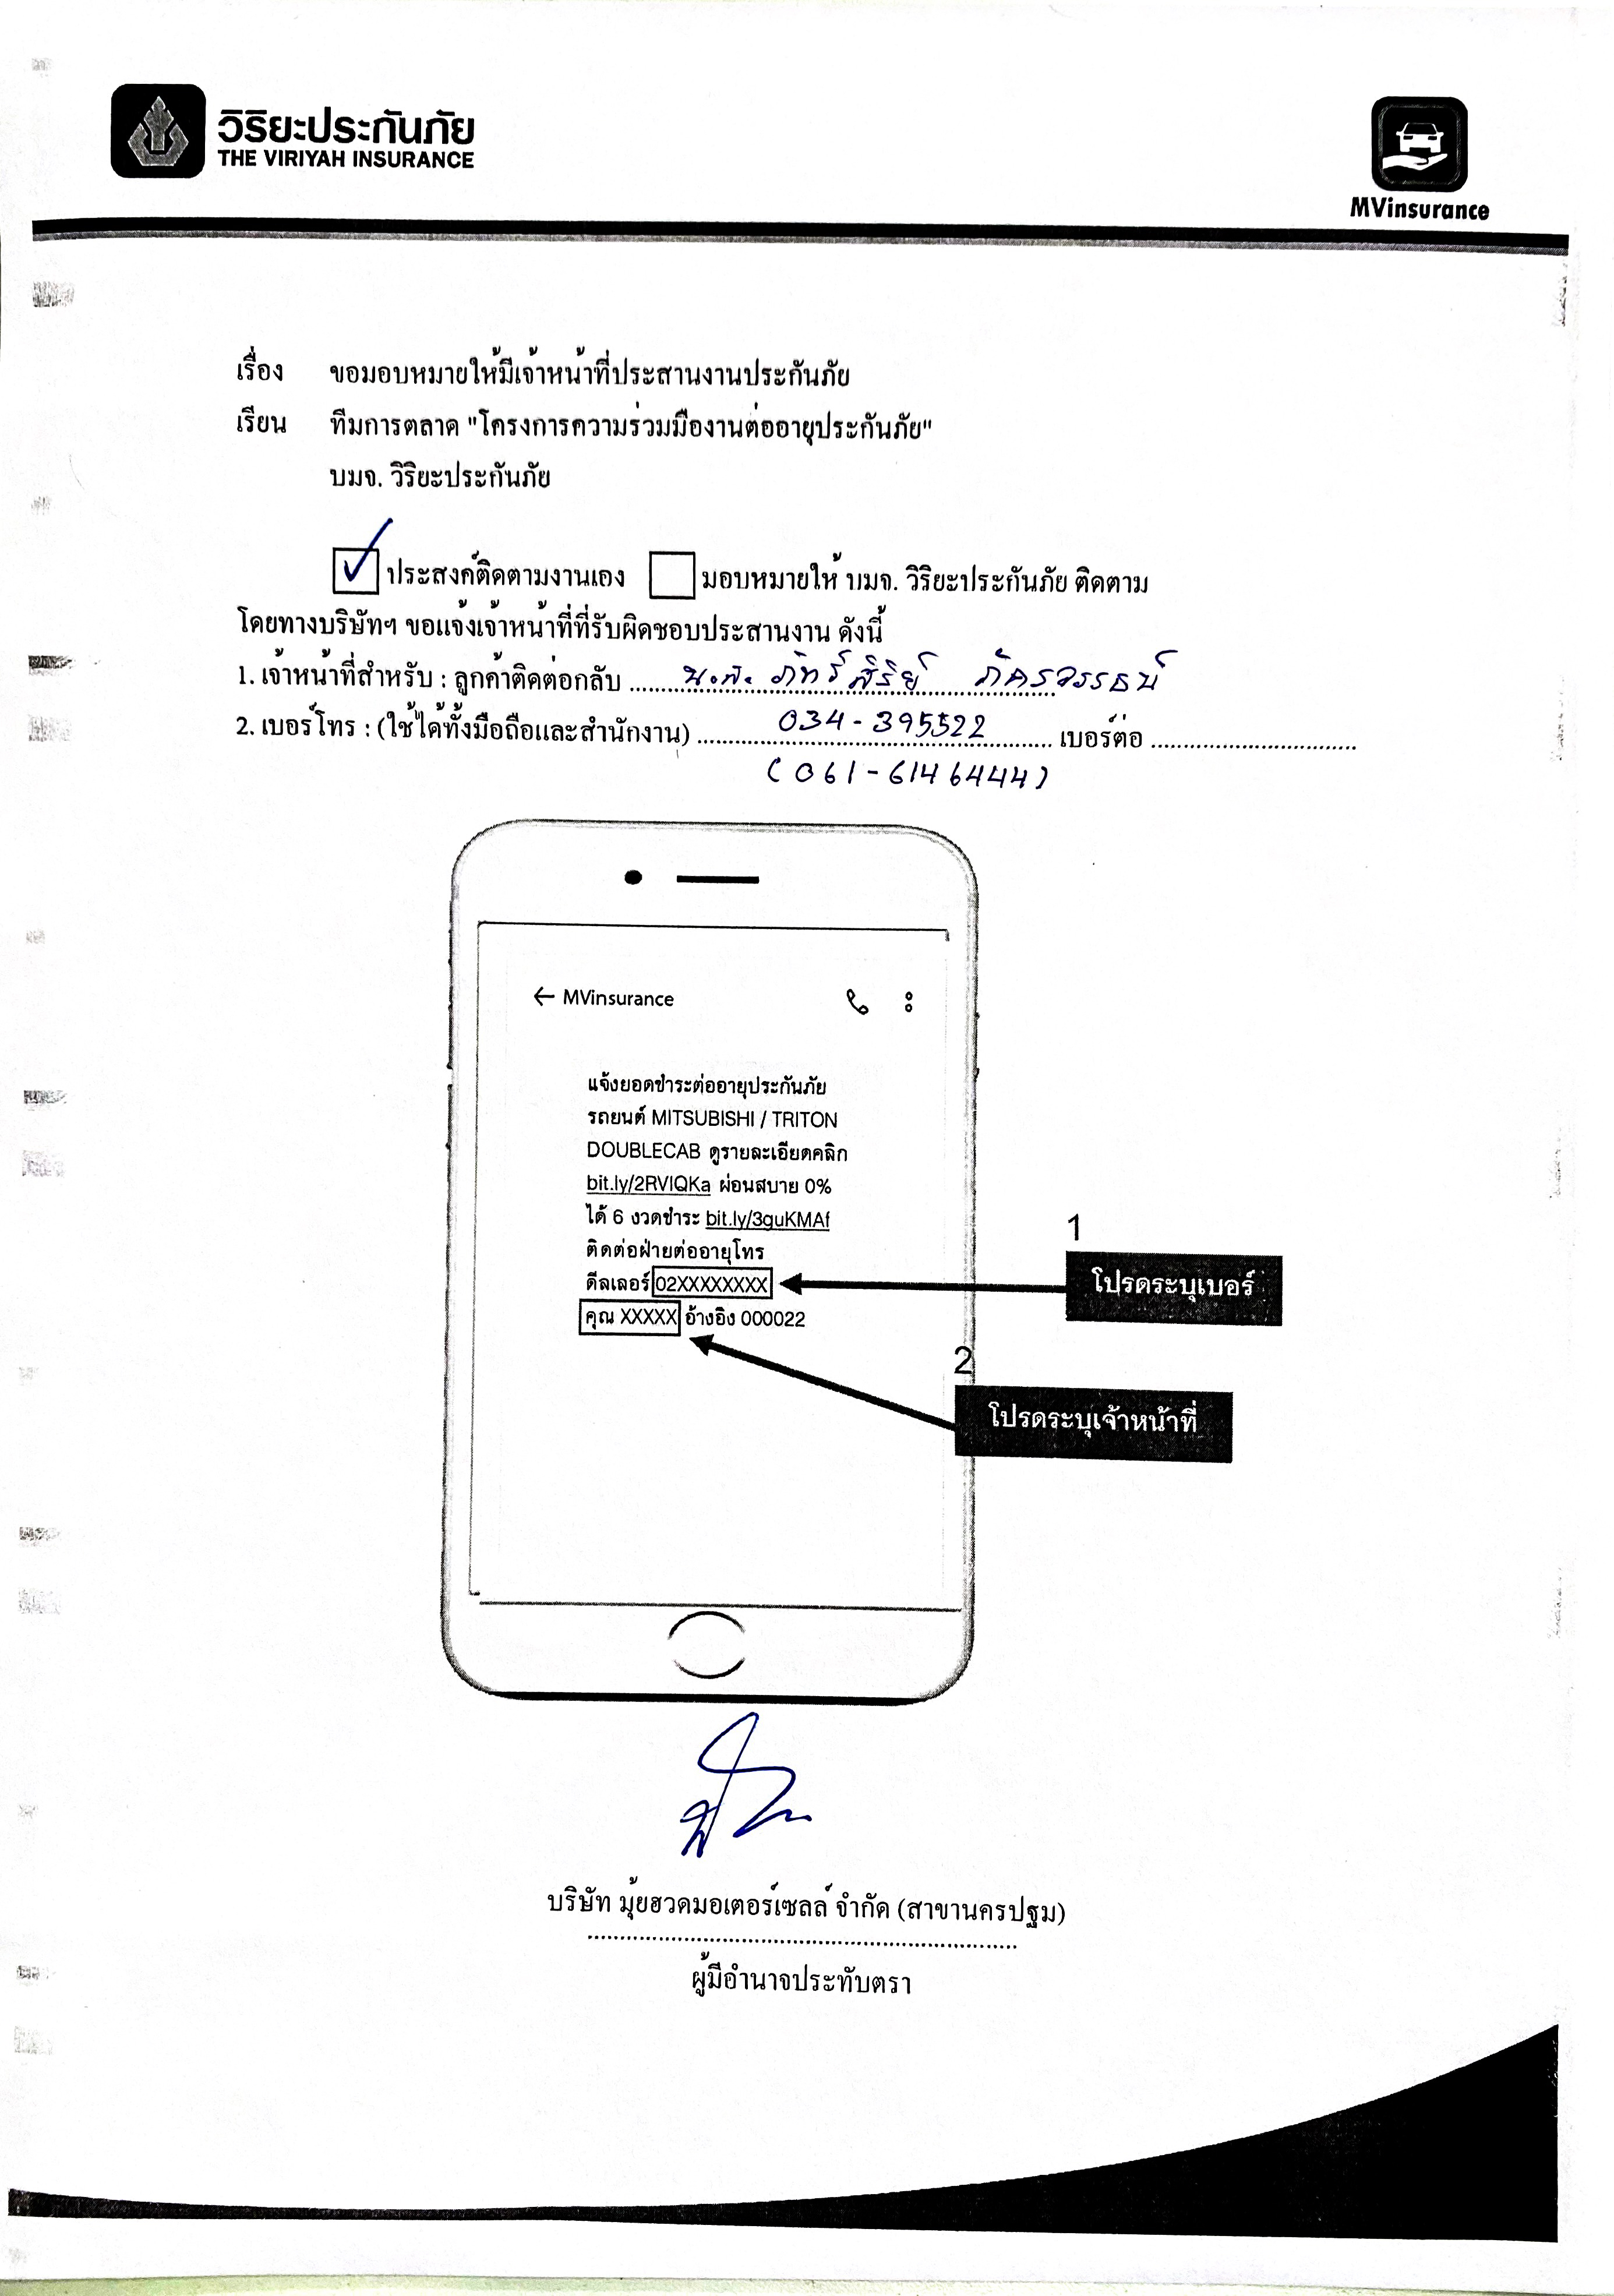 วิริยะประกันภัย
THE VIRIYAH INSURANCE
MVinsurance
เรื่อง ขอมอบหมายให้มีเจ้าหน้าที่ประสานงานประกันภัย
เรียน ทีมการตลาด "โครงการความร่วมมืองานต่ออายุประกันภัย"
บมจ. วิริยะประกันภัย
ประสงค์ติดตามงานเอง มอบหมายให้ บมจ. วิริยะประกันภัย ติดตาม
โดยทางบริษัทฯ ขอแจ้งเจ้าหน้าที่ที่รับผิดชอบประสานงาน ดังนี้
1. เจ้าหน้าที่สำหรับ : ลูกค้าติดต่อกลับ น.ส. ภัทร์สิริย์ ภัครวรรธน์
2. เบอร์โทร : (ใช้ได้ทั้งมือถือและสำนักงาน) 034-395522 เบอร์ต่อ
(061-6146444)
← MVinsurance
แจ้งยอดชำระต่ออายุประกันภัย
รถยนต์ MITSUBISHI / TRITON
DOUBLECAB ดูรายละเอียดคลิก
bit.ly/2RVIQKa ผ่อนสบาย 0%
ได้ 6 งวดชำระ bit.ly/3guKMAf
ติดต่อฝ่ายต่ออายุโทร
ดีลเลอร์ 02XXXXXXXX
คุณ XXXXX อ้างอิง 000022
1
โปรดระบุเบอร์
2
โปรดระบุเจ้าหน้าที่
บริษัท มุ้ยฮวดมอเตอร์เซลล์ จำกัด (สาขานครปฐม)
ผู้มีอำนาจประทับตรา